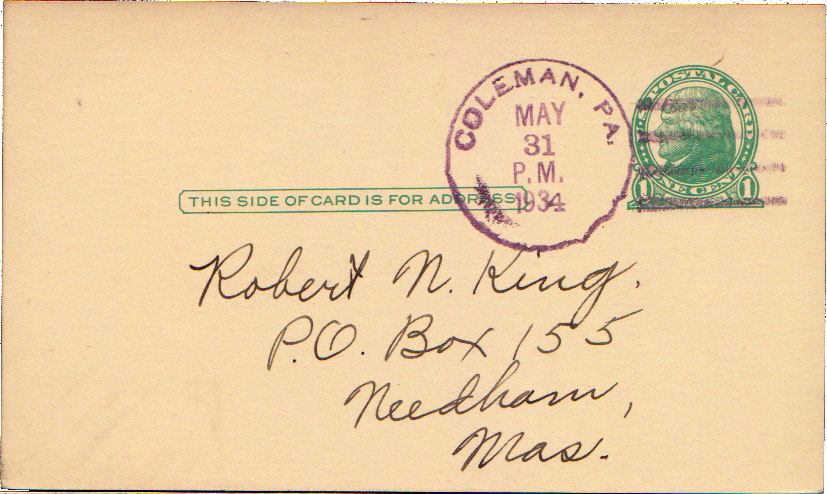 COLEMAN, PA.
MAY
31
P.M.
1934
U.S. POSTAL CARD
ONE CENT
1 1
THIS SIDE OF CARD IS FOR ADDRESS
Robert N. King.
P.O. Box 155
Needham,
Mas.